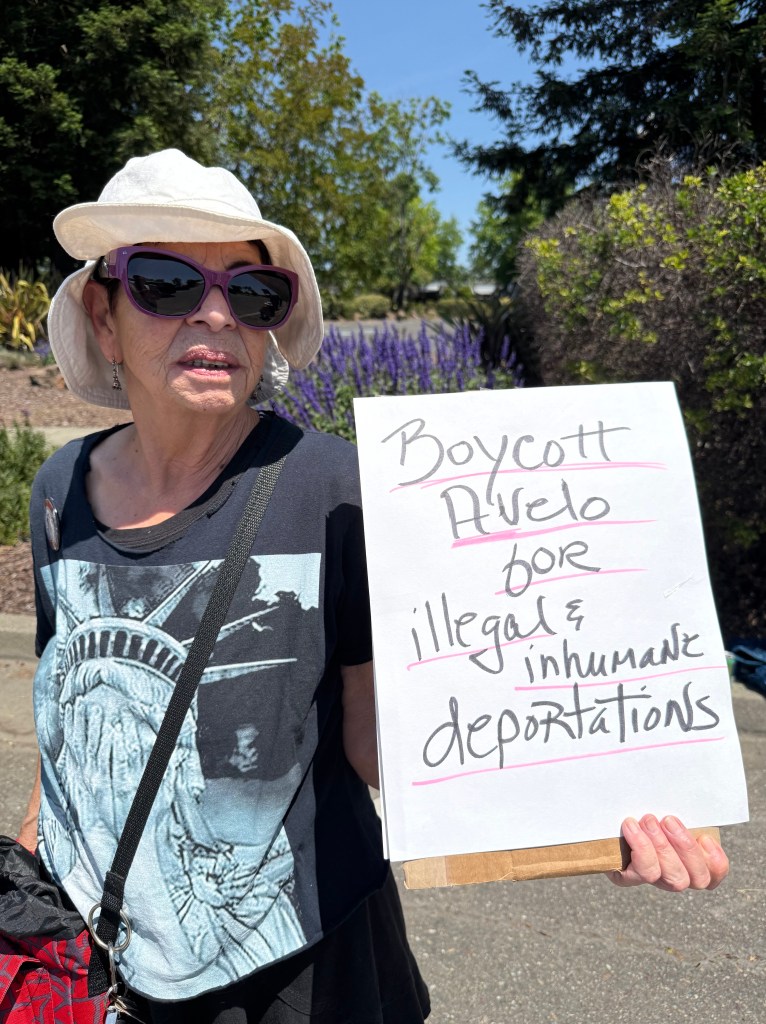 Boycott
Avelo
for
illegal &
inhumane
deportations